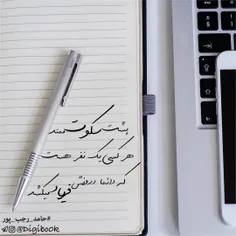 پشت سکوت ممتد
هر کسی یک نفر هست
که دائما در خودش فریاد میکشد
#حامد_رجب_پور
@Digibook